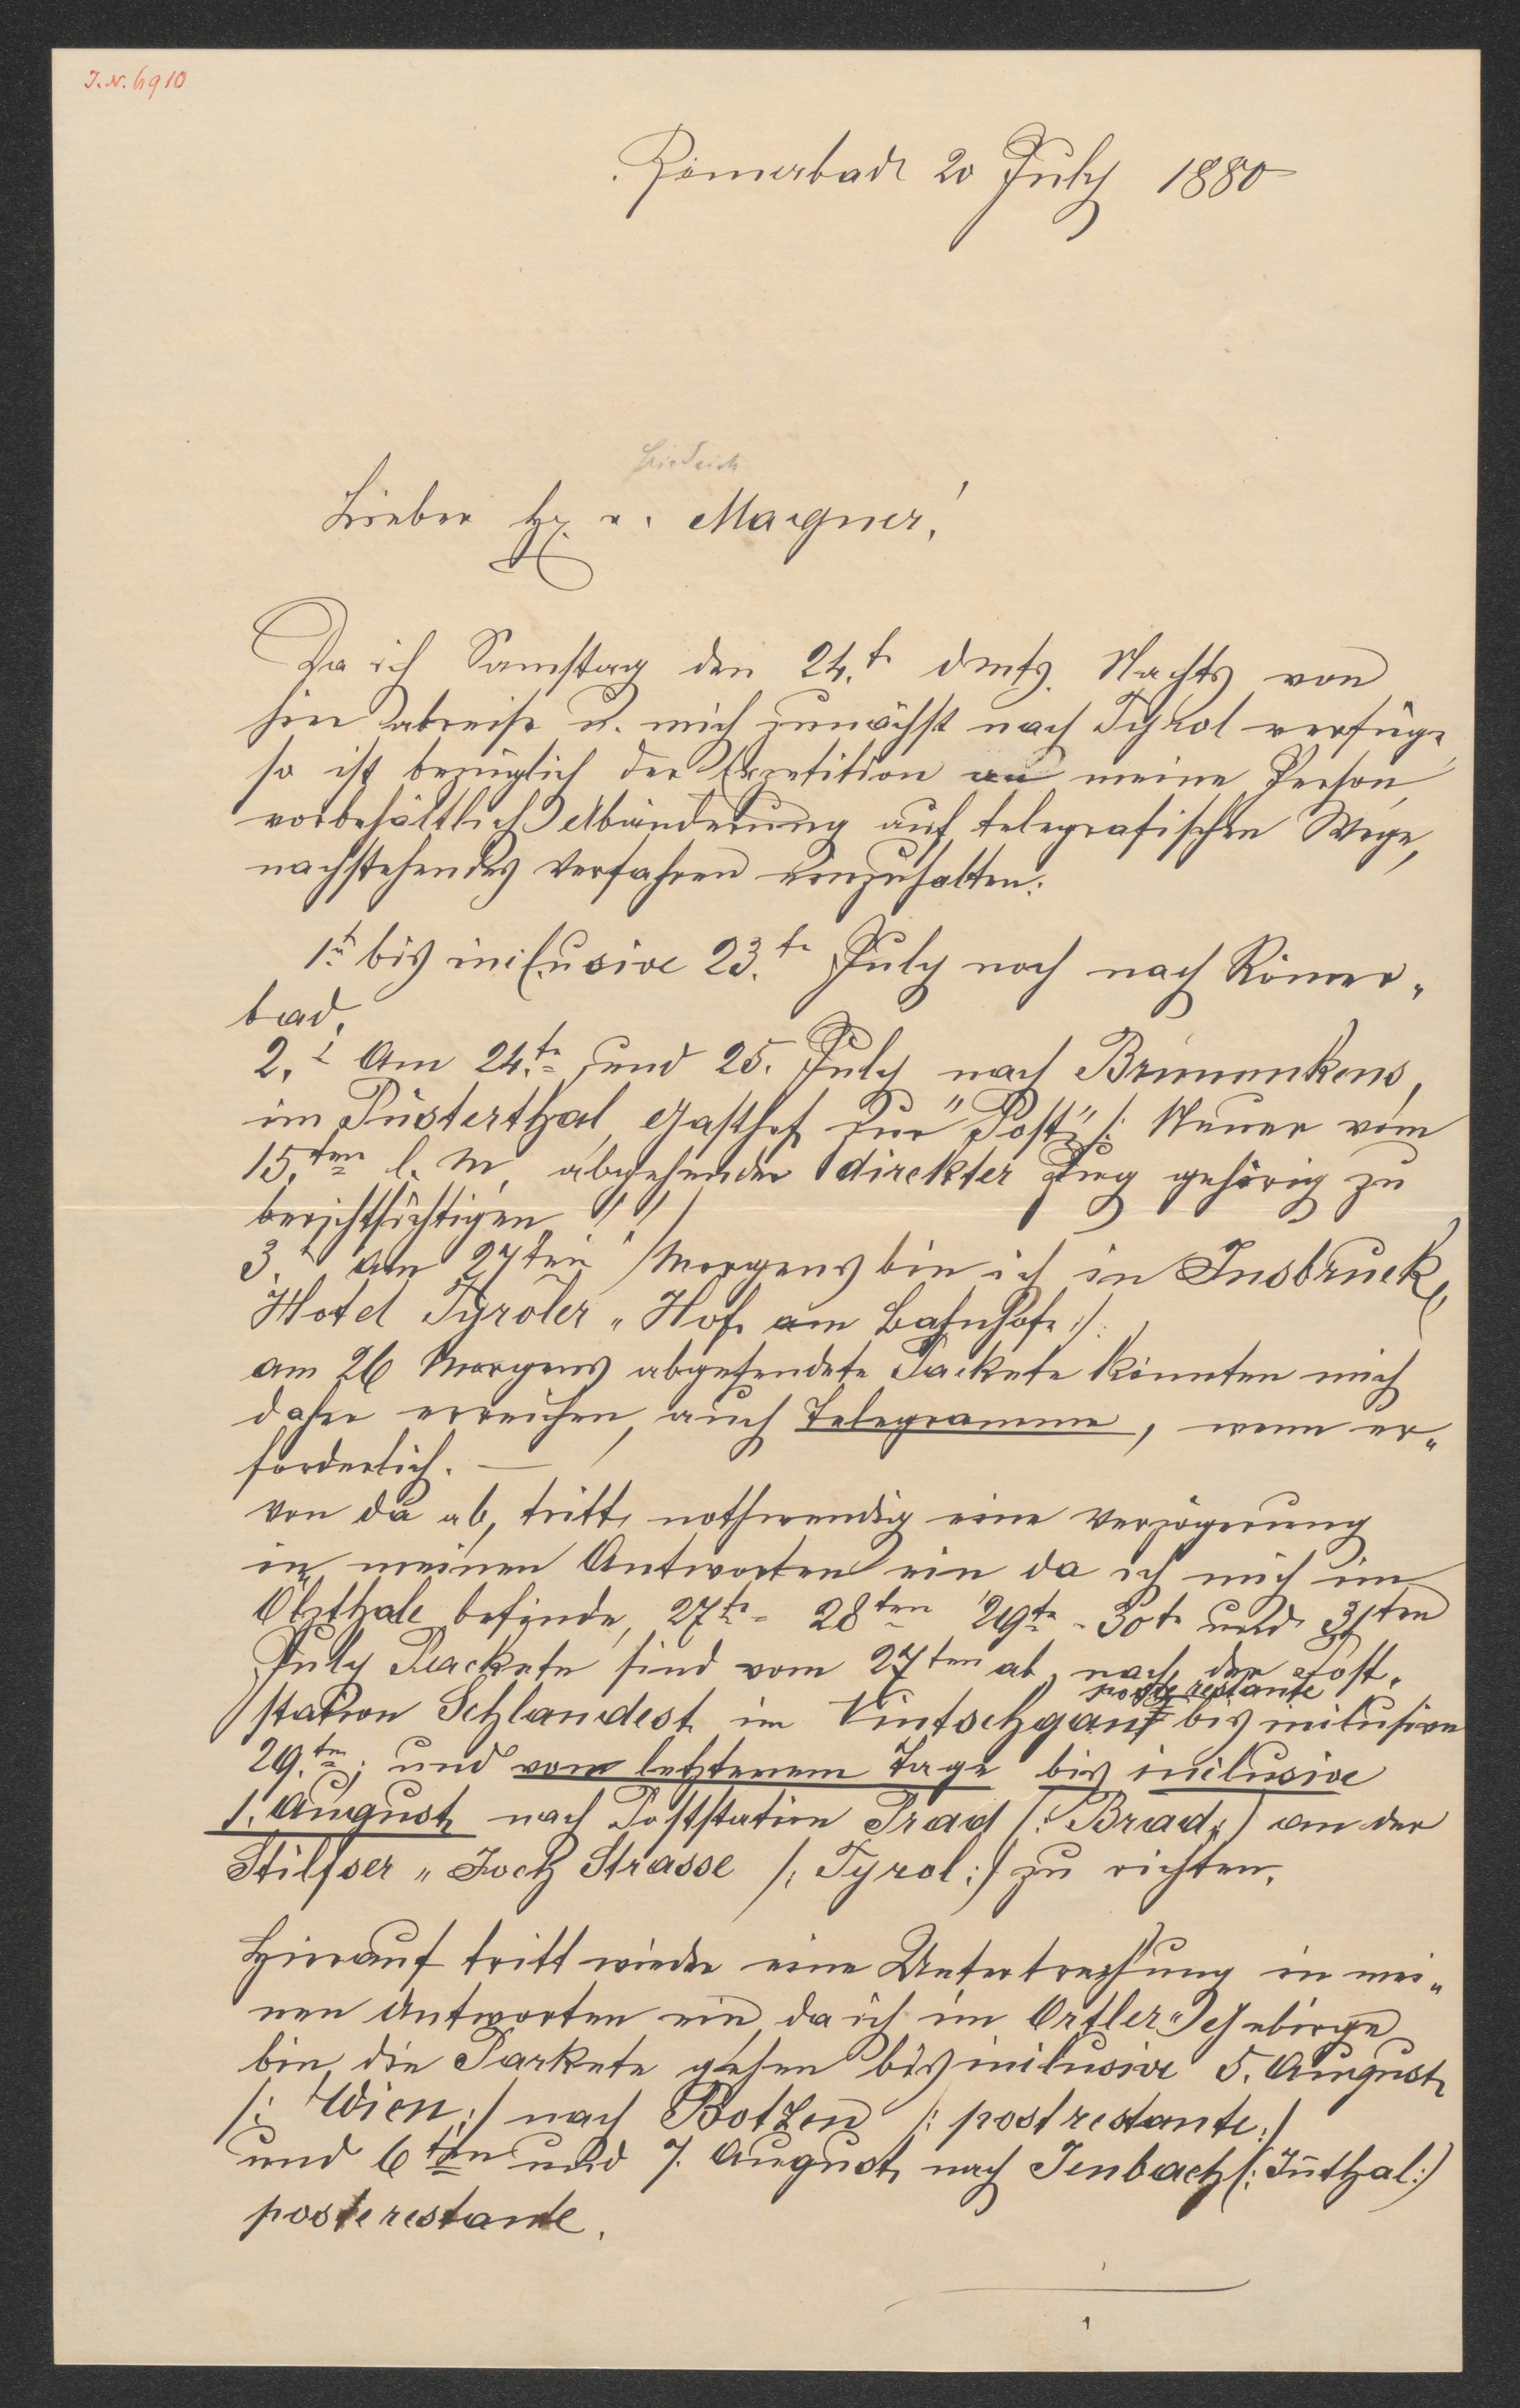 I. N. 6910
Römerbad 20 July 1880
Friedrich
Lieber H. v. Wagner!
Da ich Samstag den 24.t dmts. Nachts von
hier abreise u. mich zunächst nach Tyrol verfüge,
so ist bezüglich der Expetition an meine Person,
vorbehältlich Abänderung auf telegrafischen Wege,
nachstehendes Verfahren einzuhalten:
1.t bis inclusive 23.t July noch nach Römer„
bad.
2.t Am 24.t und 25. July nach
im Pusterthal, Gasthof zur "Post" /: Neuer vom
15.ten l. M. abgehender direkter Zug gehörig zu
berichtsichtigen!!
3.t am 27ten Morgens bin ich in Insbruck
Hotel Tyroler „ Hof am Bahnhofe :/.
am 26 Morgens abgesendete Packete könnten mich
daher erreichen, auch Telegramme, wenn er„
forderlich. —
von da ab, tritt nothwendig eine Verzögerung
in meinen Antworten ein da ich mich im
Ötzthale befinde, 27t - 28ten 29t - 30t und 31ten
July Packete sind vom 27ten ab, nach der Post„
poste restante
station Schlandest im Vintschgau bis inclusive
29.tn; und vom letzterem Tage bis inclusive
1. August nach Poststation Prad /: Brad :/ an der
Stilfser „ Joch Strasse /: Tyrol :/ zu richten.
Hierauf tritt wieder eine Unterbrechung in mei„
nen Antworten ein, da ich im Ortler„Gebirge
bin, die Packete gehen bis inclusive 5. August
/: Wien :/ nach Botzen /: post restante :/
und 6ten und 7. August nach Jenbach /: Inthal :/
poste restante.
1